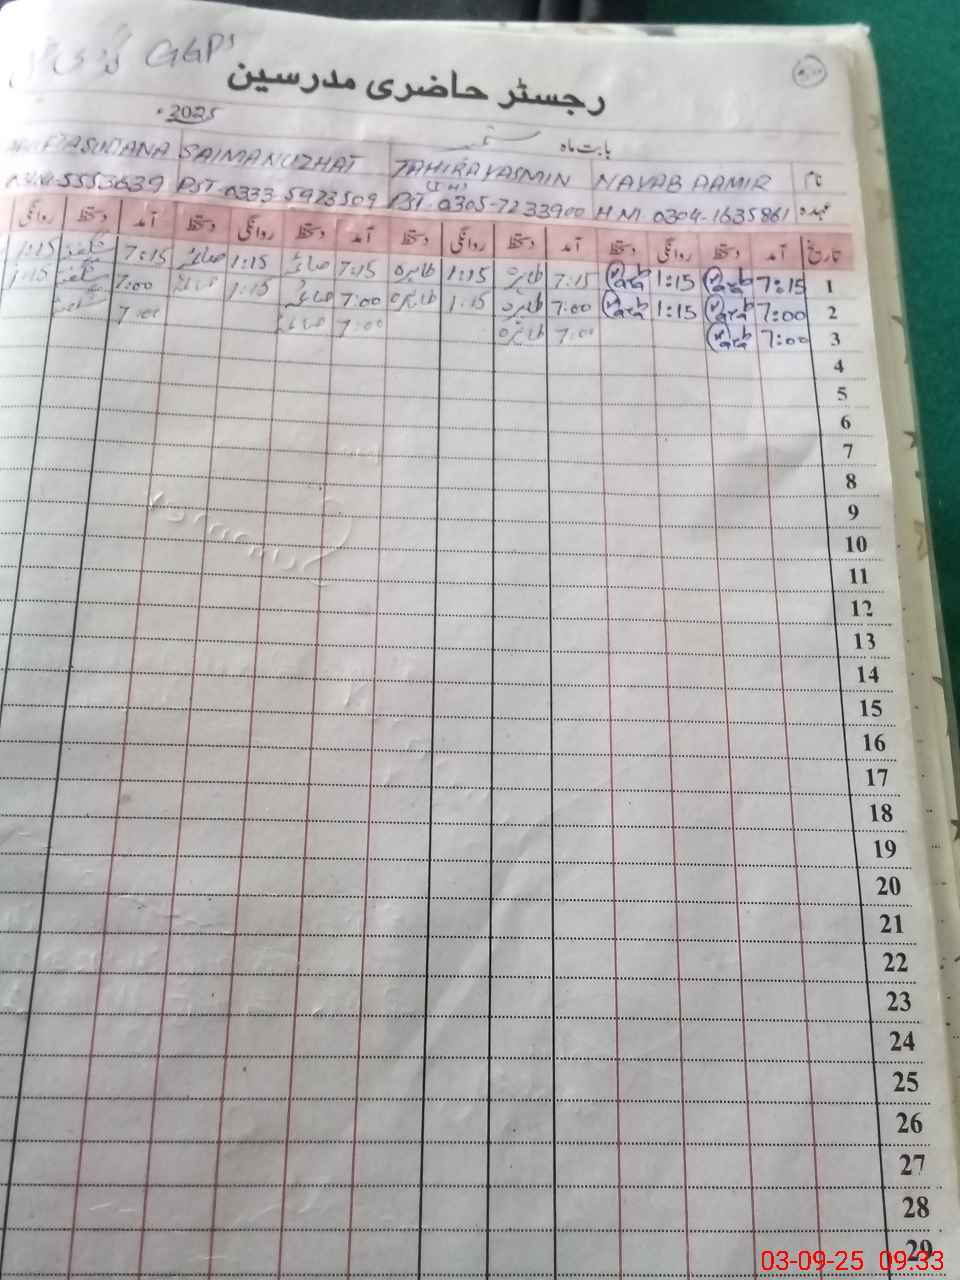 GGPS
رجسٹر حاضری مدرسین
بابت ماہ ستمبر 2025
نام NAYAB AAMIR TAHIRA YASMIN SAIMA NUZHAT SULTANA
عہدہ H.M 0304-1635861 PST 0305-7233900 PST-0333 5923509 5553639
تاریخ آمد دستخط روانگی دستخط آمد دستخط روانگی دستخط آمد دستخط روانگی دستخط آمد دستخط روانگی
1 7:15 1:15 7:15 طاہرہ 1:15 طاہرہ 7:15 صائمہ 1:15 صائمہ 7:15 1:15
2 7:00 1:15 7:00 طاہرہ 1:15 طاہرہ 7:00 صائمہ 1:15 صائمہ 7:00 1:15
3 7:00 7:00 طاہرہ 7:00 صائمہ 7:00
4
5
6
7
8
9
10
11
12
13
14
15
16
17
18
19
20
21
22
23
24
25
26
27
28
29
03-09-25 09:33